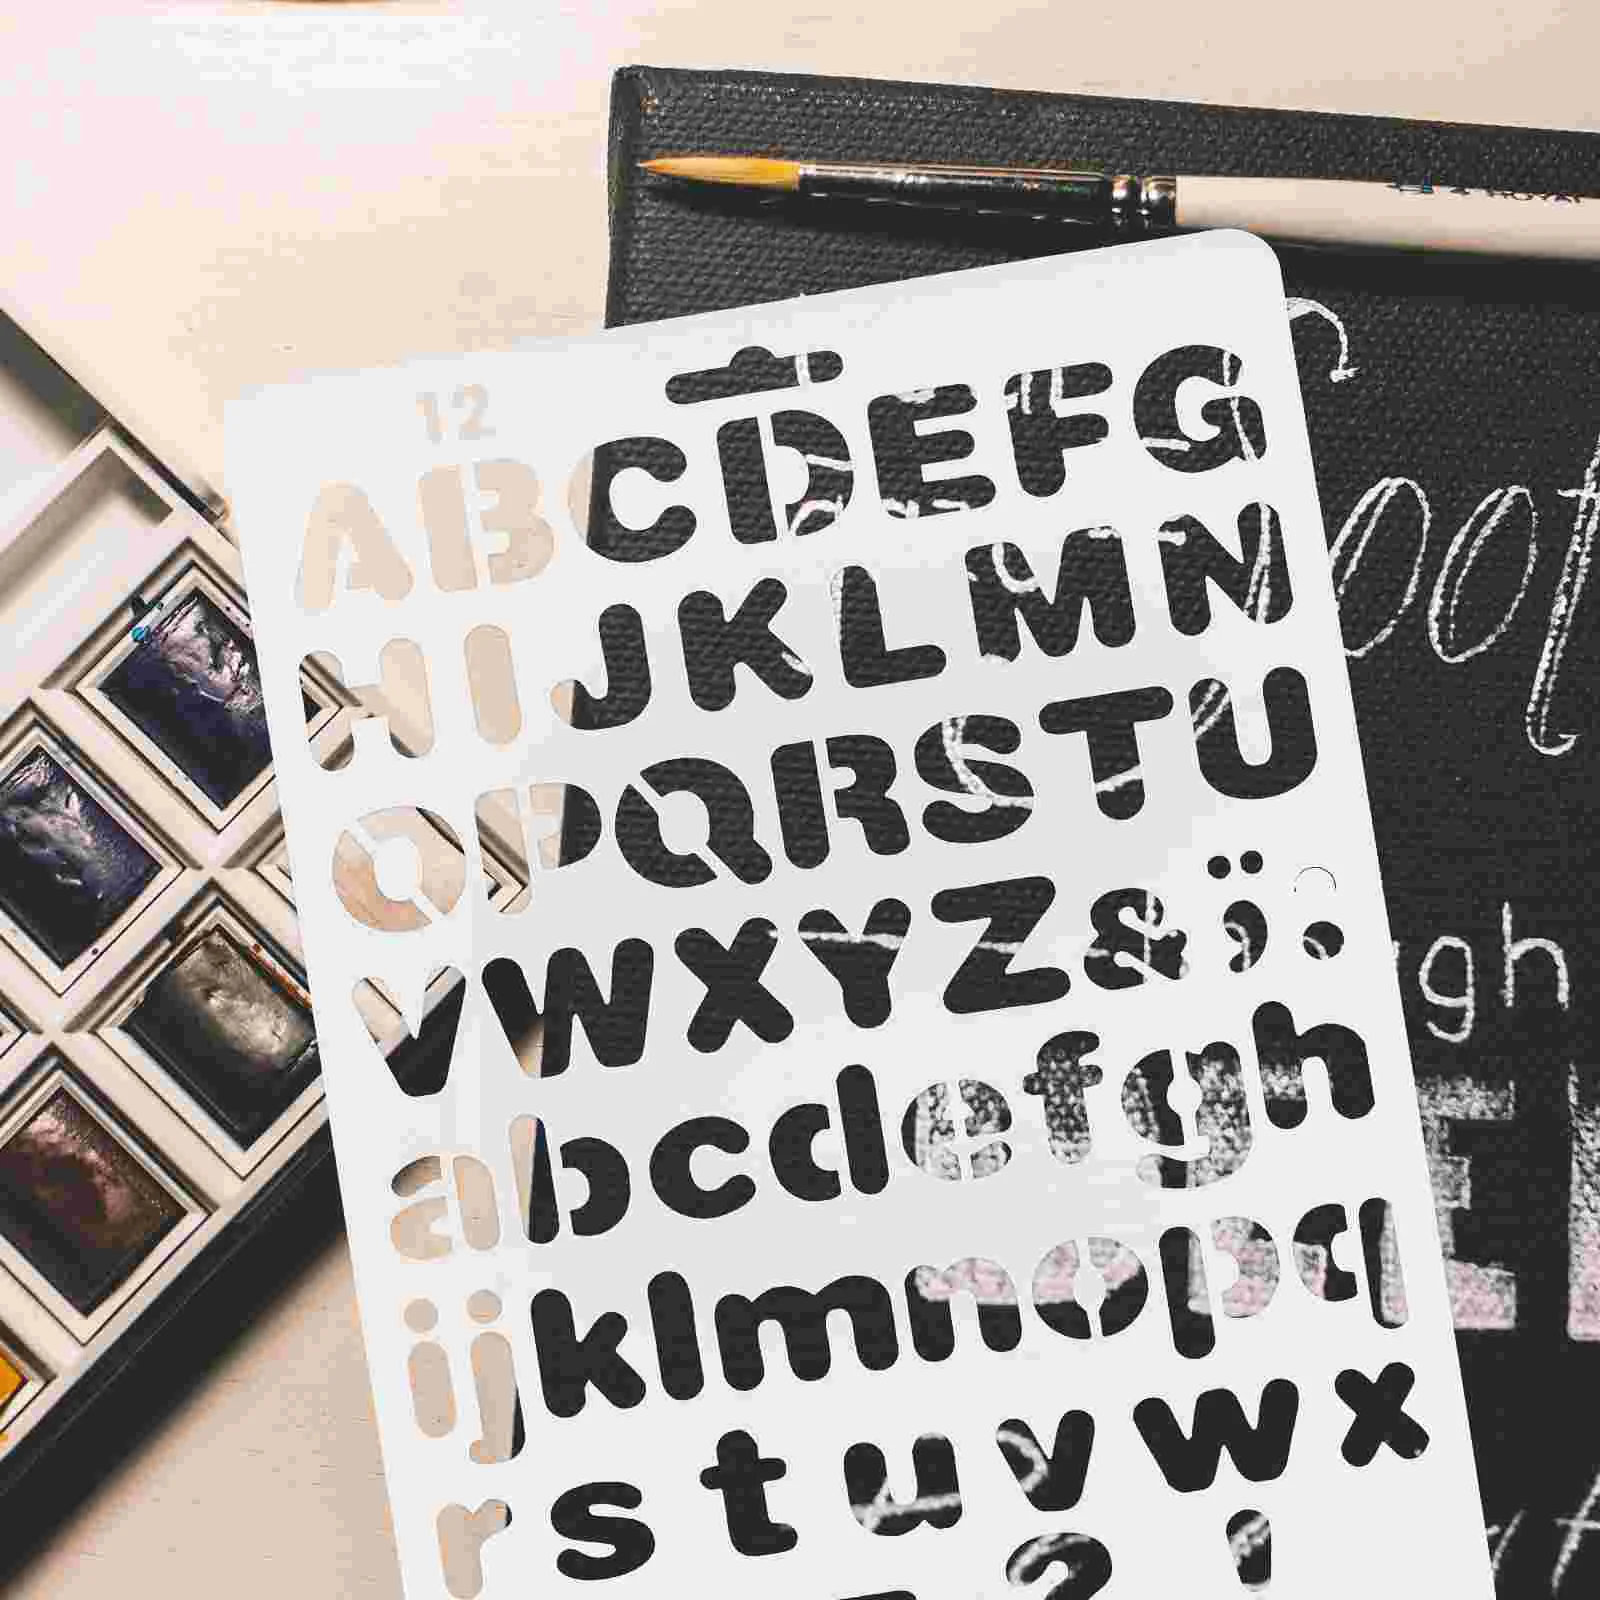 ROYAL
12
ABCDEFG
HIJKLMN
OPQRSTU
VWXYZ&;:
abcdefgh
ijklmnopq
rstuvwx
?!
gh